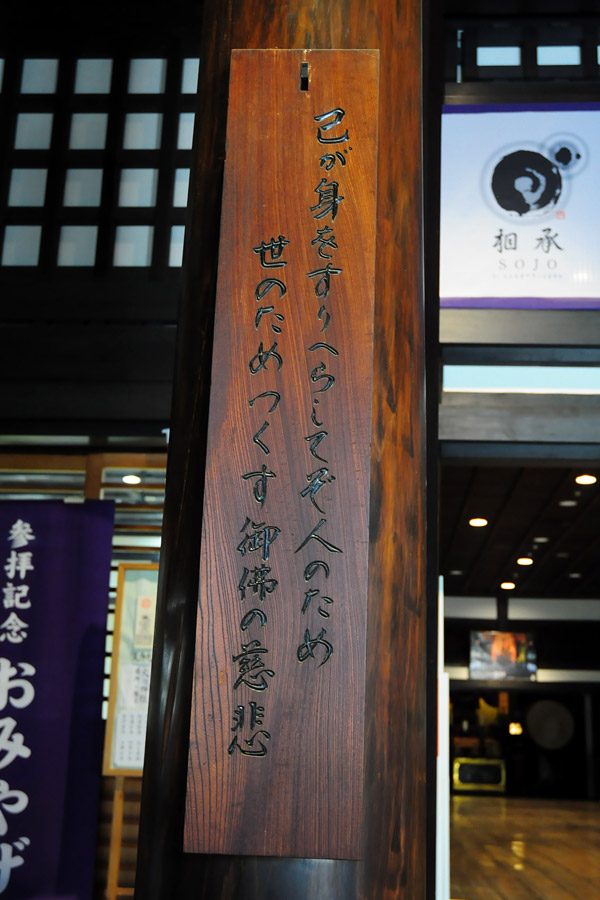 己が身をすりへらしてぞ人のため
世のためつくす御佛の慈悲
相承
SOJO
参拝記念
おみやげ